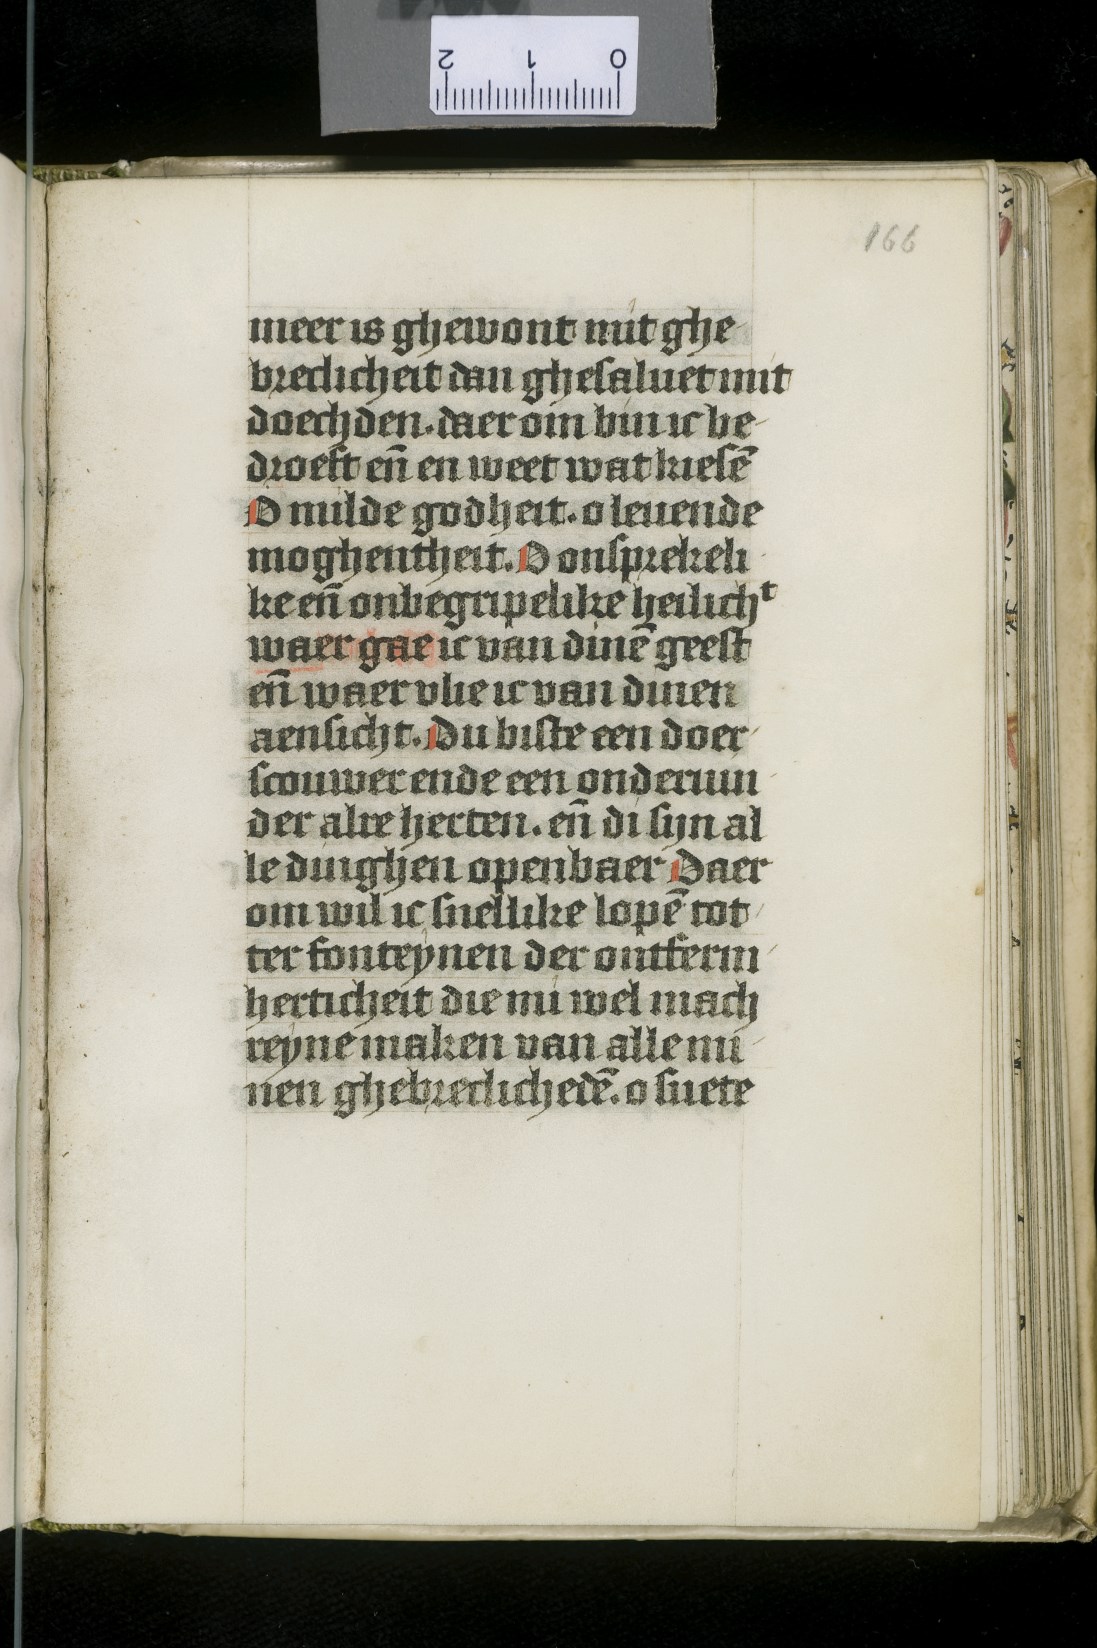 2 1 0
166
meer is ghewont mit ghe
breclicheit dan ghesaluet mit
doechden. daer om bin ic be
droeft en̄ en weet wat kiesē
O milde godheit. o leuende
moghentheit. O onsprekeli
ke en̄ onbegripelike heilichᵗ
waer gae ic van dinē geest
en̄ waer vlie ic van dinen
aensicht. Du biste een doer
scouwer ende een onderuin
der alre herten. en̄ di sijn al
le dinghen openbaer Daer
om wil ic snellike lopē tot
ter fonteynen der ontferm
herticheit die mi wel mach
reyne maken van alle mi
nen ghebreclichedē. o suete